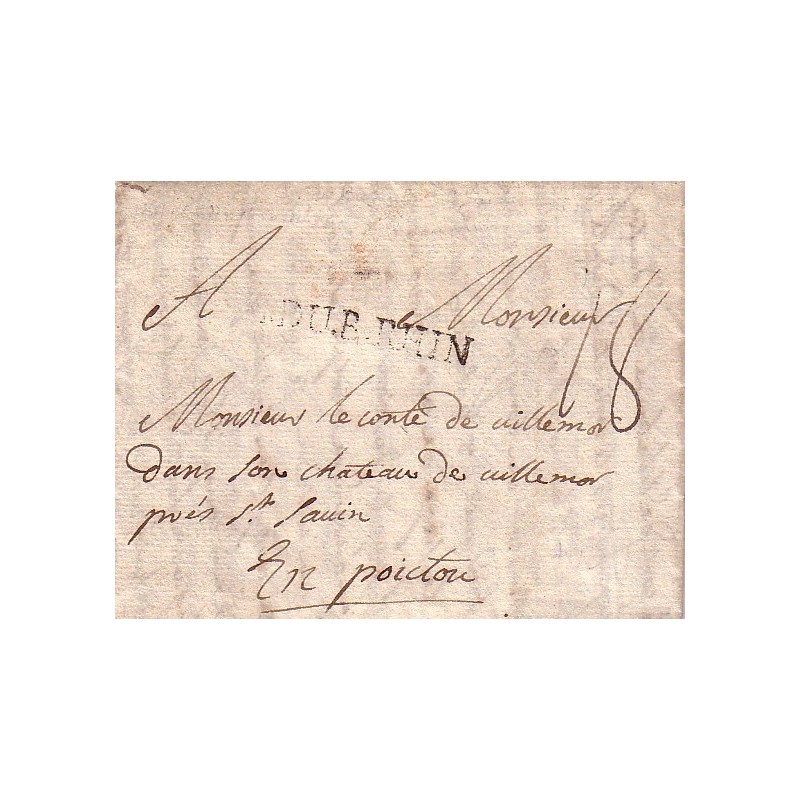 A Monsieur 18
DU.B.RHIN
Monsieur le conte de villemor
dans son chateau de villemor
prés st. Savin
En poictou